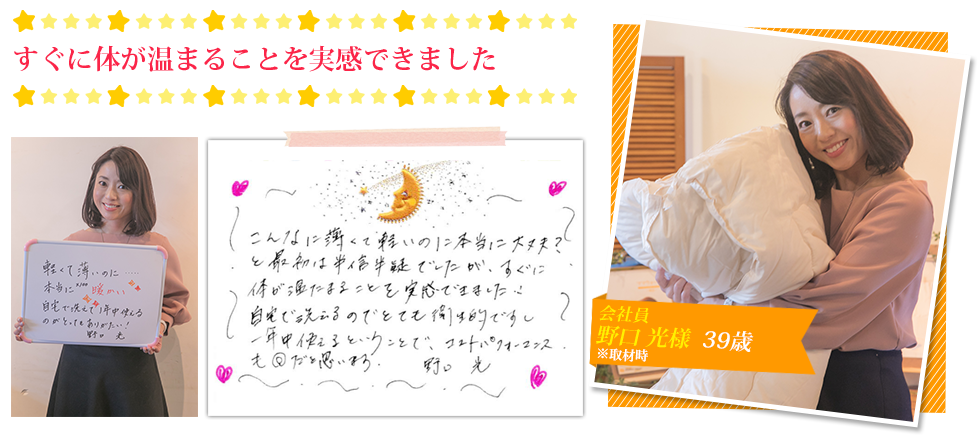 すぐに体が温まることを実感できました
軽くて薄いのに……
本当に暖かい
自宅で洗えて1年中使える
のがとってもありがたい!
野口 光
こんなに薄くて軽いのに本当に大丈夫?
と最初は半信半疑でしたが、すぐに
体が温たまることを実感できました!
自宅で洗えるのでとても衛生的ですし
一年中使えるということで、コストパフォーマンス
も◎だと思います。
野口 光
会社員
野口 光様 39歳
※取材時